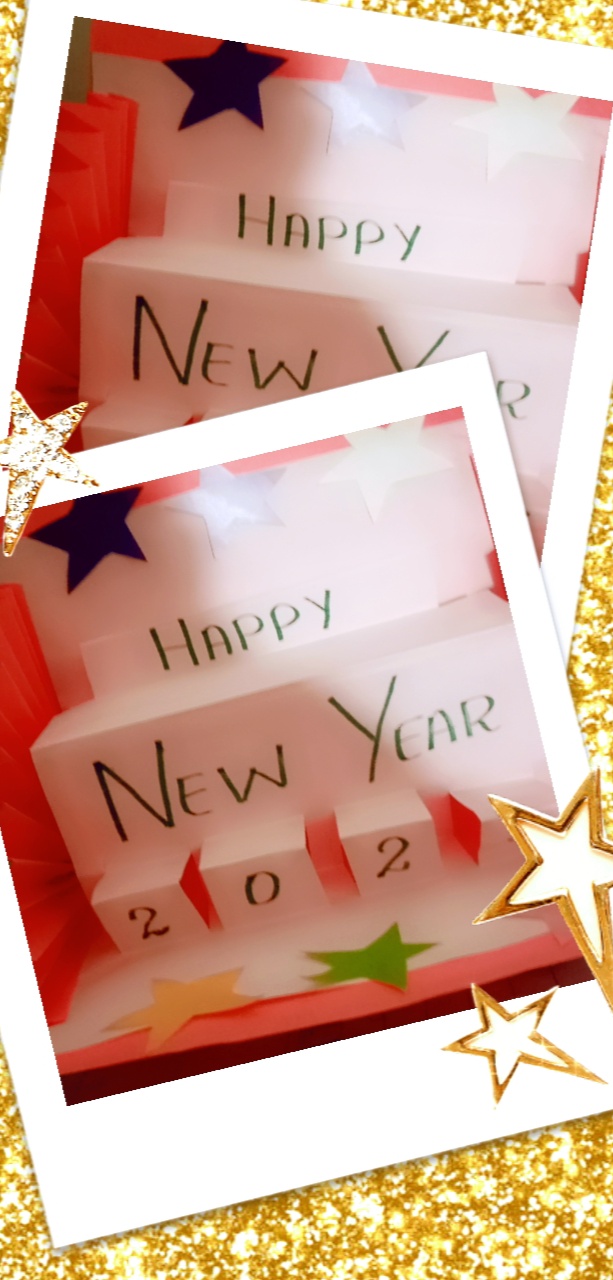 HAPPY
NEW Y R
HAPPY
NEW YEAR
2 0 2